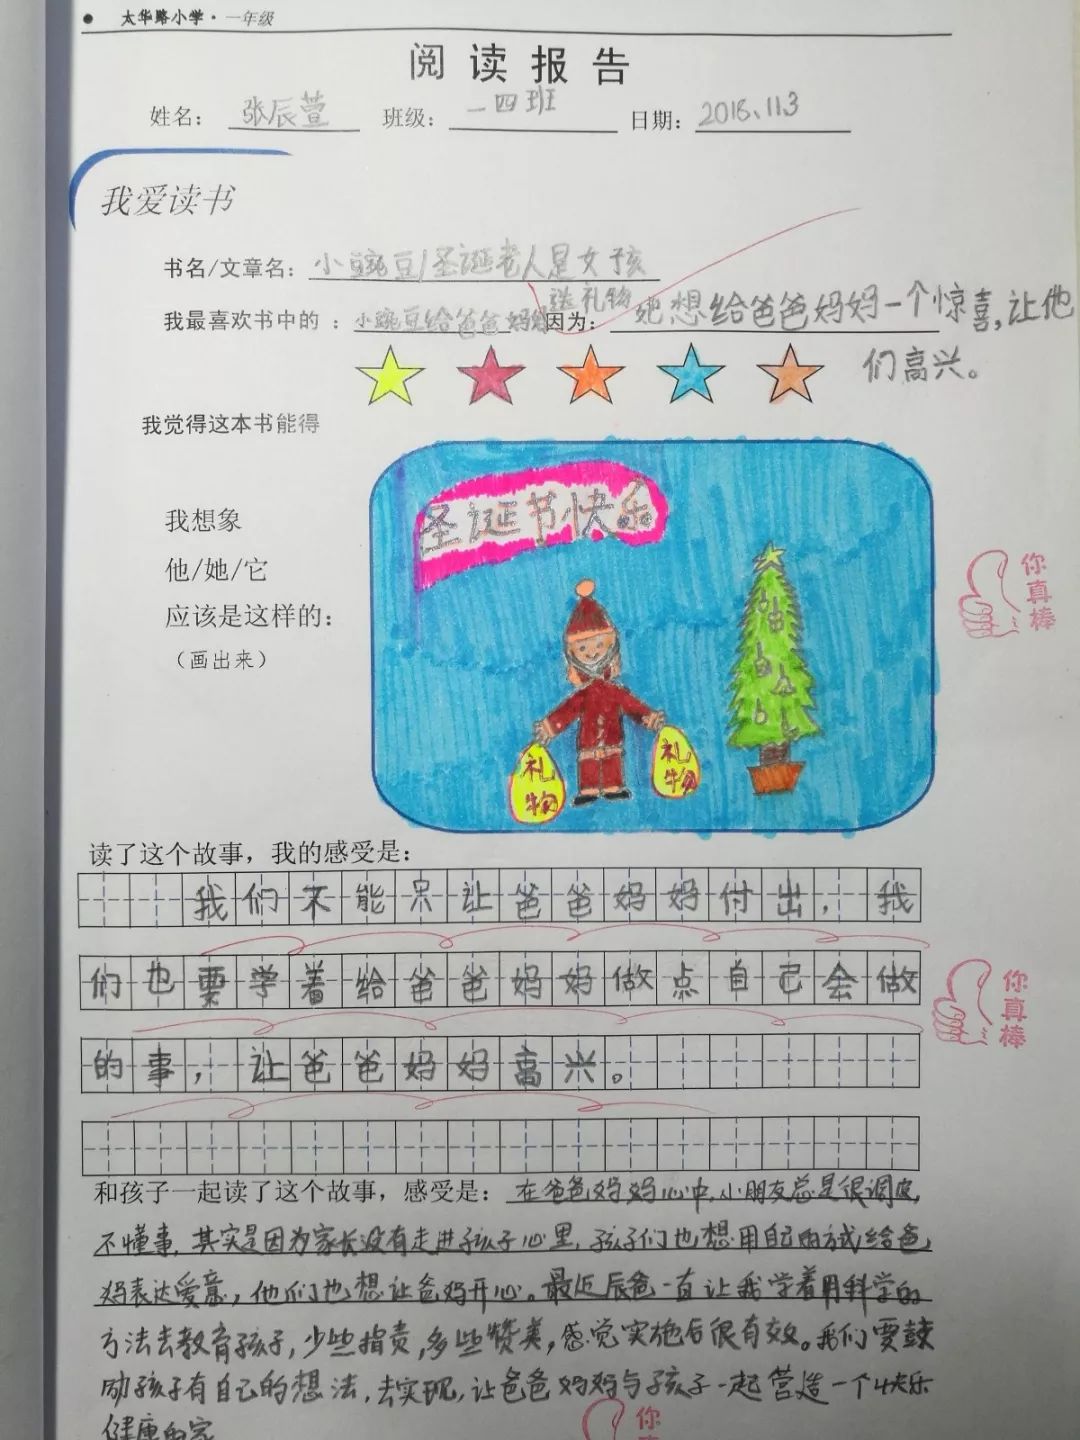 太华路小学·一年级
阅读报告
姓名：张辰萱 班级：一四班 日期：2018、11.3
我爱读书
书名/文章名：小豌豆/圣诞老人是女孩
我最喜欢书中的：小豌豆给爸爸妈妈送礼物 因为：她想给爸爸妈妈一个惊喜，让他
们高兴。
我觉得这本书能得
我想象
他/她/它
应该是这样的：
（画出来）
圣诞节快乐
礼物
礼物
你真棒
读了这个故事，我的感受是：
我们不能只让爸爸妈妈付出，我
们也要学着给爸爸妈妈做点自己会做
的事，让爸爸妈妈高兴。
你真棒
和孩子一起读了这个故事，感受是：在爸爸妈妈心中，小朋友总是很调皮，
不懂事，其实是因为家长没有走进孩子心里，孩子们也想用自己的方式给爸
妈表达爱意，他们也想让爸妈开心。最近辰爸一直让我学着用科学的
方法去教育孩子，少些指责，多些赞美，感觉实施后很有效。我们要鼓
励孩子有自己的想法，去实现，让爸爸妈妈与孩子一起营造一个快乐
健康的家
你